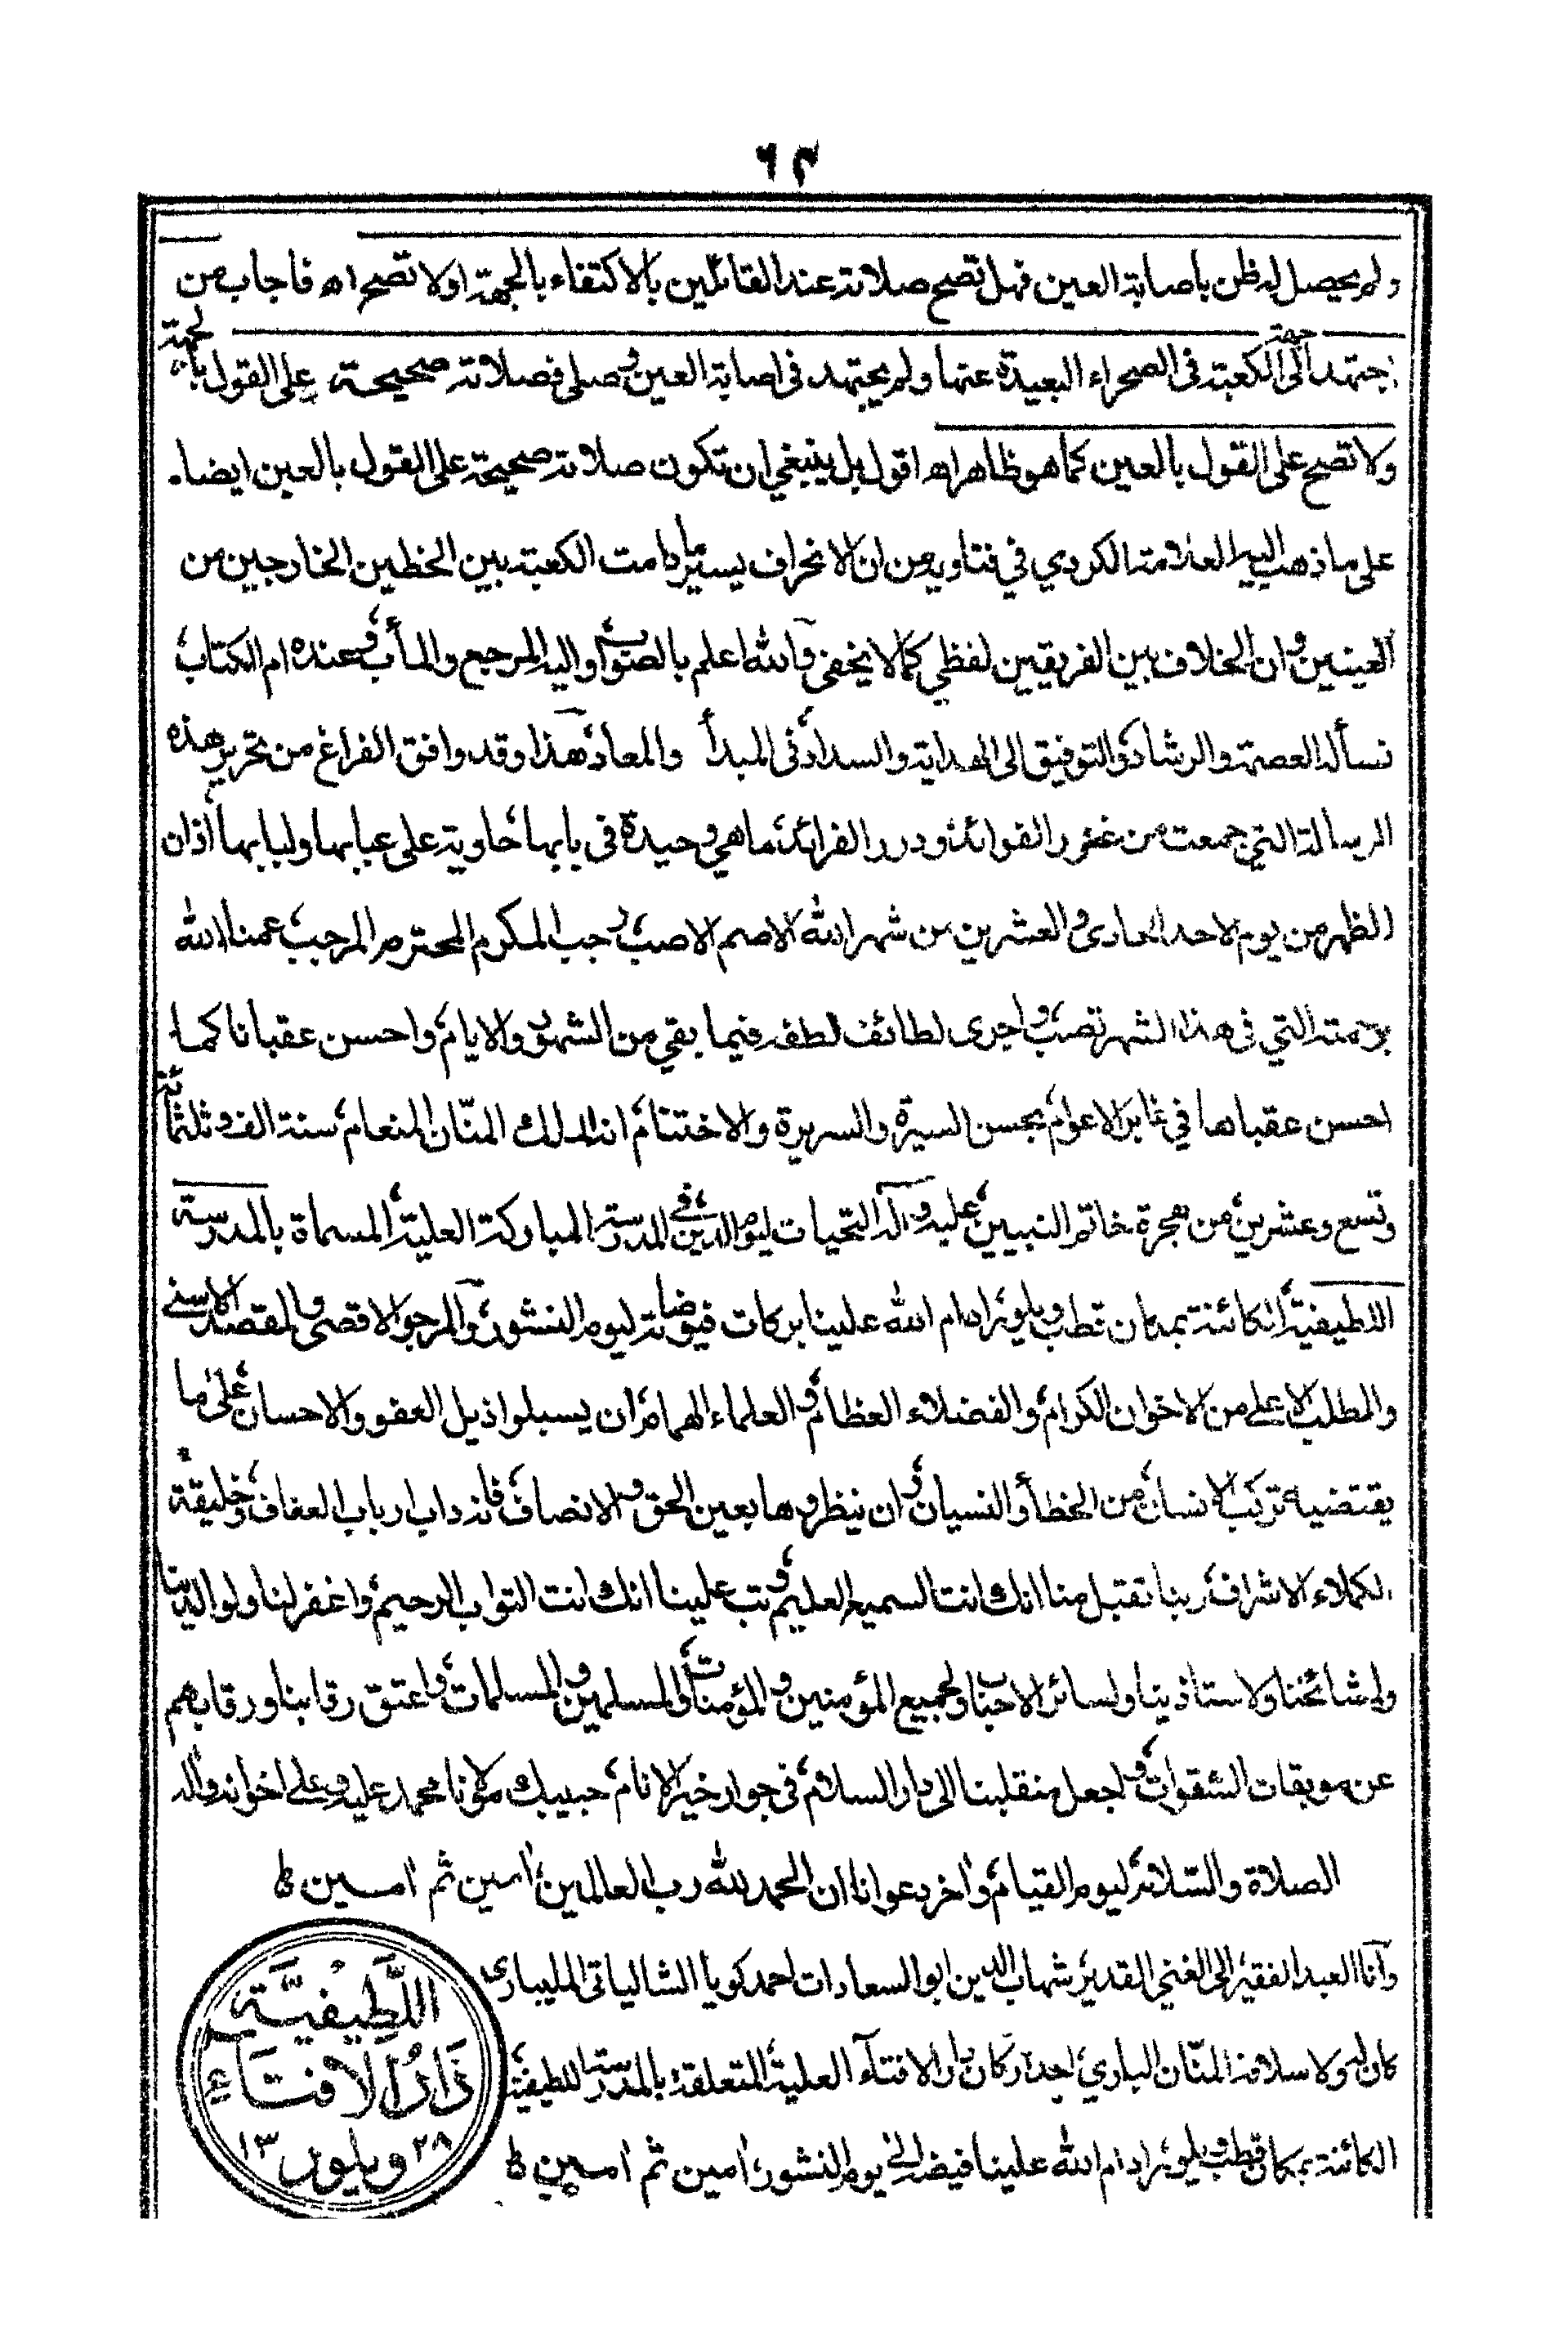 ٦٣
ولم يحصل له ظن باصابة العين فهل تصح صلاته عند القائلين بالاكتفاء بالجهة او لا تصح اه فاجاب من
اجتهد الى جهة الكعبة في الصحراء البعيدة عنها ولم يجتهد في اصابة العين وصلى فصلاته صحيحة على القول بالجهة
ولا تصح على القول بالعين كما هو ظاهر اه اقول بل ينبغي ان تكون صلاته صحيحة على القول بالعين ايضا.
على ما ذهب اليه العلامة الكردي في فتاويه من ان الانحراف يسير ما دامت الكعبة بين الخطين الخارجين من
العينين وان الخلاف بين الفريقين لفظي كما لا يخفى والله اعلم بالصواب واليه المرجع والمأب وعنده ام الكتاب
نسأله العصمة والرشاد والتوفيق الى الهداية والسداد في المبدأ والمعاد هذا وقد وافق الفراغ من تحرير هذه
الرسالة التي جمعت من غرر الفوائد ودرر الفرائد ما هي وحيدة في بابها حاوية على عبابها ولبابها اذان
الظهر من يوم الاحد الحادي والعشرين من شهر الله الاصم الاصب رجب المكرم المحترم المرجب عمنا الله
برحمته التي في هذا الشهر تصب واجرى لطائف لطفه فيما بقي من الشهور والايام واحسن عقبانا كما
احسن عقباها في غابر الاعوام بحسن السيرة والسريرة والاختتام انه الملك المنّان المنعام سنة الف وثلثمائة
وتسع وعشرين من هجرة خاتم النبيين عليه وآله التحيات ليوم الدين في المدرسة المباركة العلية المسماة بالمدرسة
اللطيفية الكائنة بمكان قطب ويلور ادام الله علينا بركات فيوضاته ليوم النشور والمرجو الاقصى والمقصد الاسنى
والمطلب الاعلى من الاخوان الكرام والفضلاء العظام والعلماء الهمام ان يسبلوا ذيل العفو والاحسان على ما
يقتضيه تركب الانسان من الخطأ والنسيان وان ينظروها بعين الحق والانصاف فانه داب ارباب العفاف وخليقة
الكملاء الاشراف ربنا تقبل منا انك انت السميع العليم وتب علينا انك انت التواب الرحيم واغفر لنا ولوالدينا
ولمشائخنا ولاستاذينا ولسائر الاحباب ولجميع المؤمنين والمؤمنات والمسلمين والمسلمات واعتق رقابنا ورقابهم
عن موبقات الشقوات واجعل منقلبنا الى دار السلام في جوار خير الانام حبيبك مولانا محمد عليه وعلى اخوانه وآله
الصلاة والسّلام ليوم القيام وآخر دعوانا ان الحمد لله رب العالمين امين ثم امسين
وآنا العبد الفقير الى الغني القدير شهاب الدين ابو السعادات احمد كويا الشالياتي المليباري
كان له ولاسلافه المنّان الباري احد اركان دار الافتآء العلية المتعلقة بالمدرسة اللطيفية
الكائنة بمكان قطب ويلور ادام الله علينا فيضه الى يوم النشور امين ثم امسين
اللَّطِيفيَّة
دَارُ الْاِفتَاءِ
٢٨ ويلور ١٣